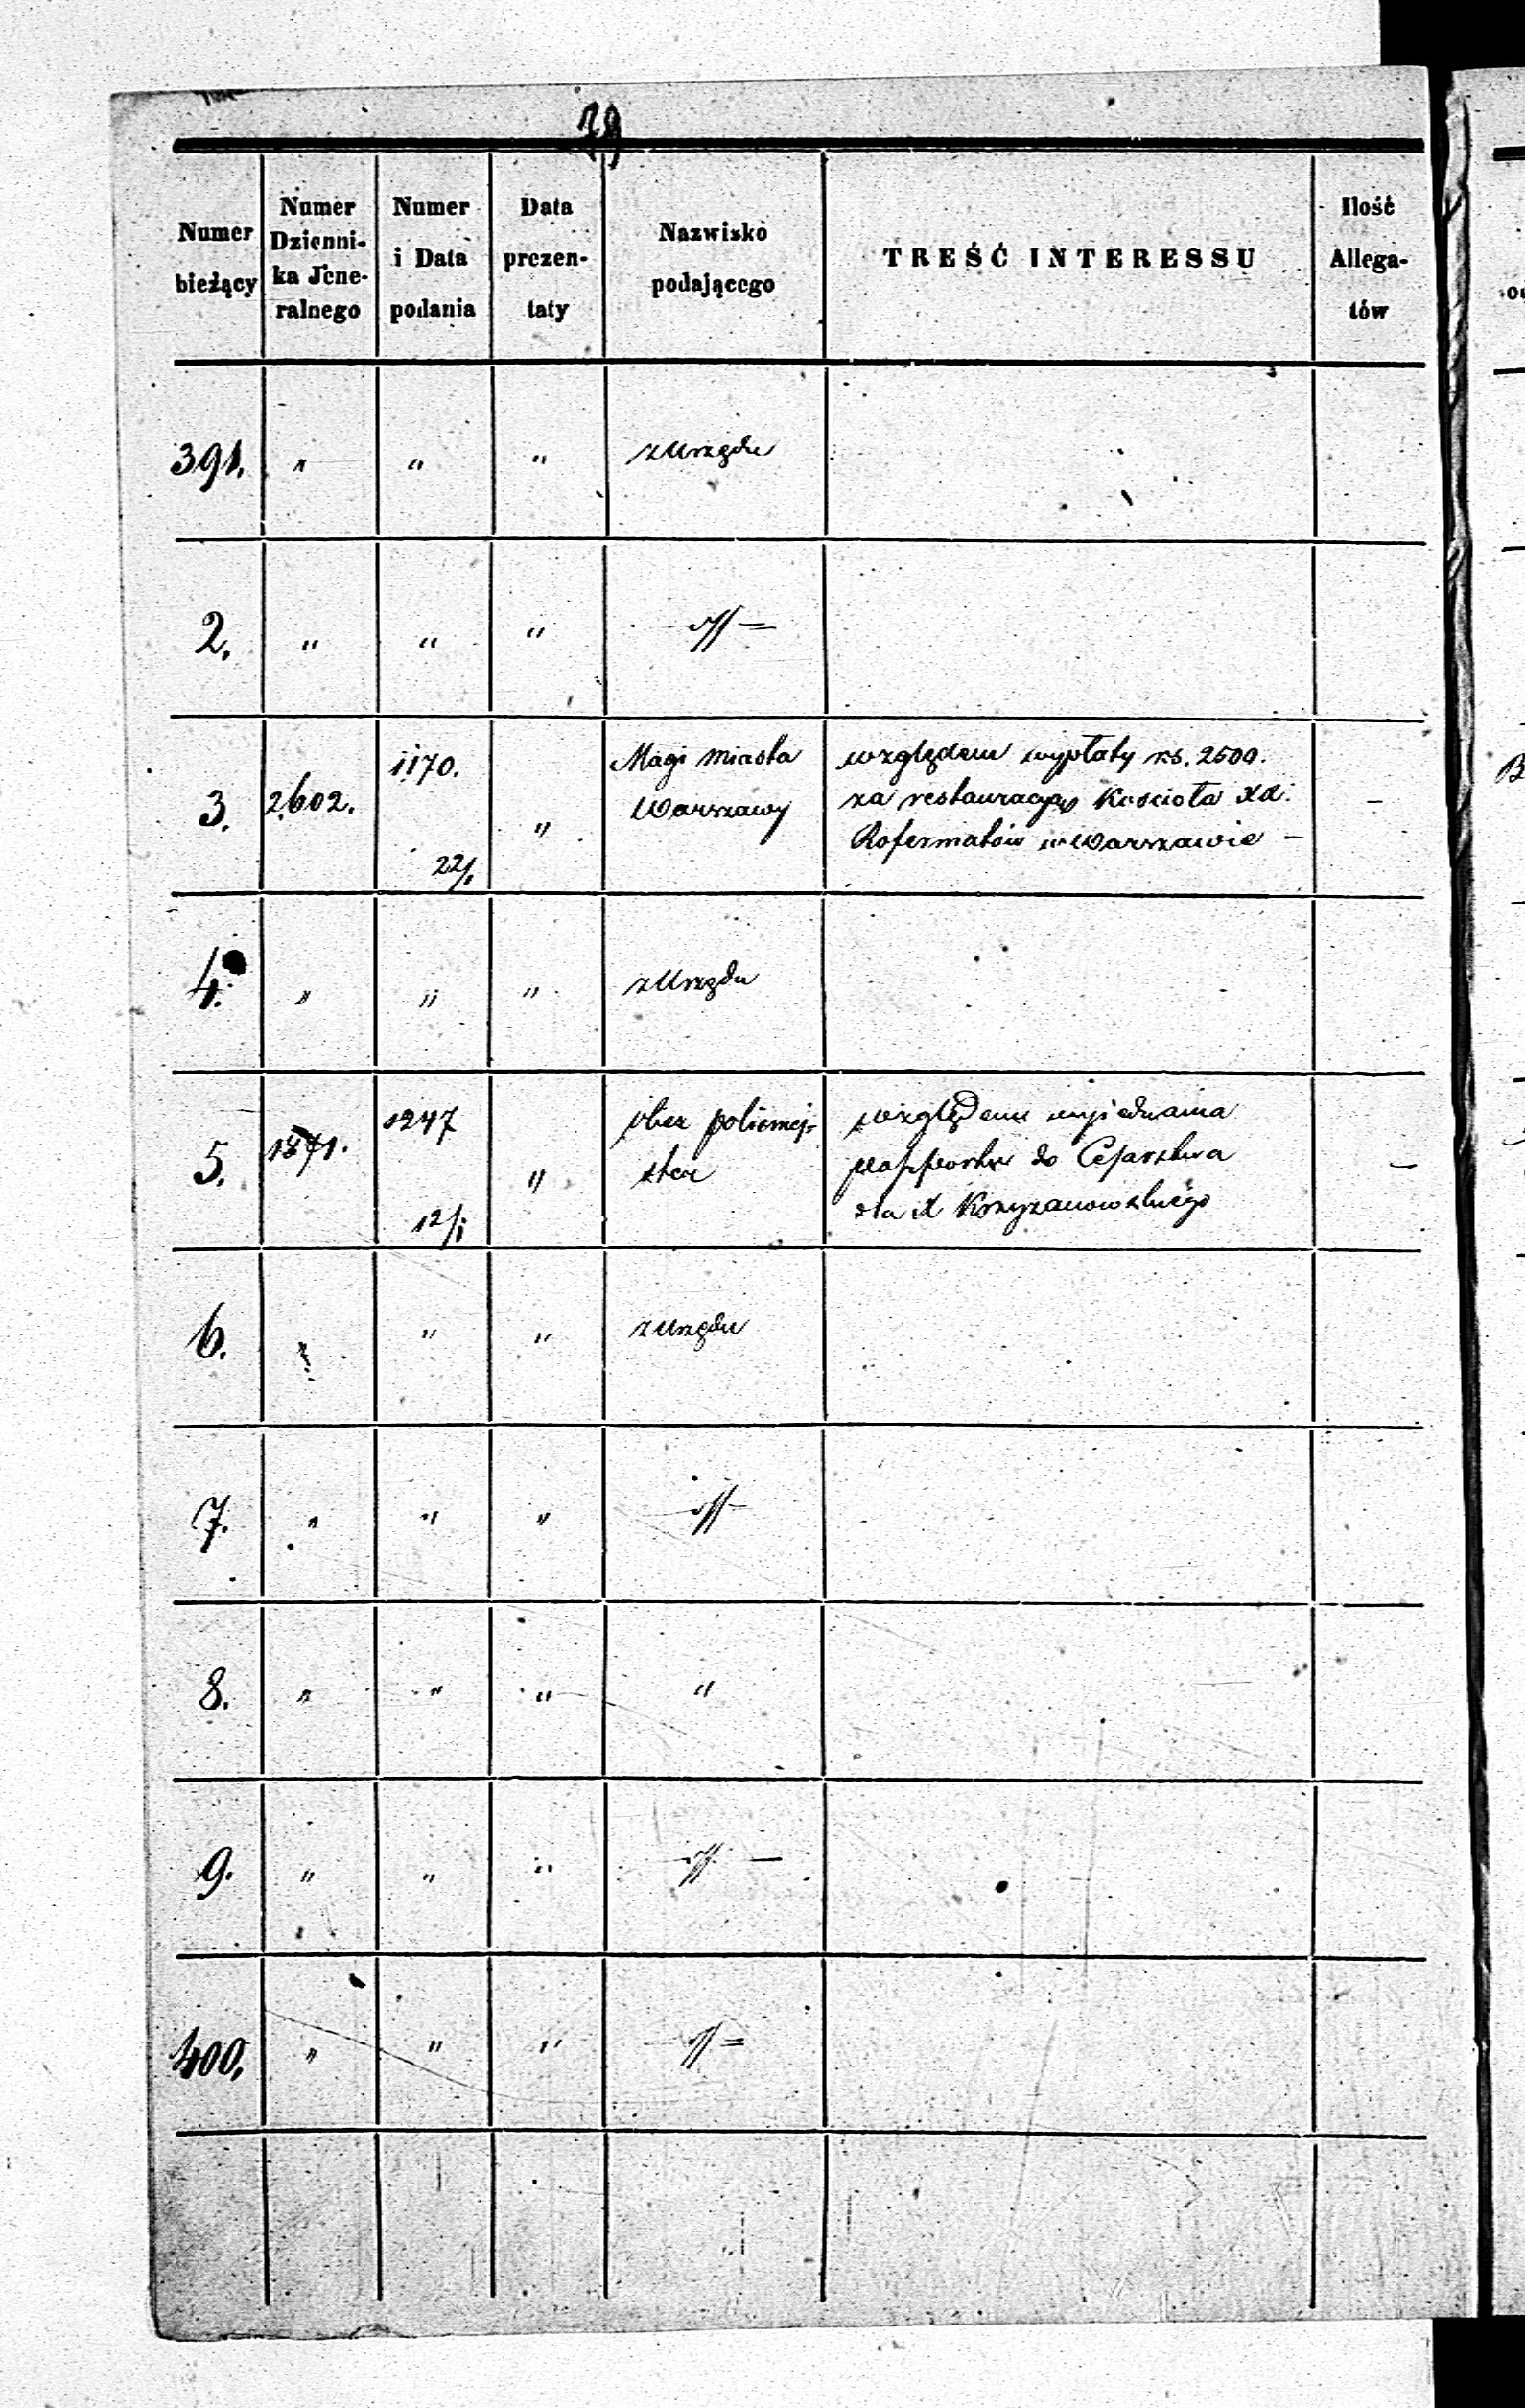 79
Numer bieżący
Numer Dzienni-ka Jene-ralnego
Numer i Data podania
Data prezen-taty
Nazwisko podającego
TREŚĆ INTERESSU
Ilość Allega-tów
391. " " " z Urzędu
2. " " " "
3. 2602. 1170. 22/1 " Magi miasta Warszawy
względem wypłaty rs. 2500.
za restauracyą Kościoła XX.
Reformatów w Warszawie —
—
4. " " " z Urzędu
5. 1871. 1247 12/1 " ober policmej-ster
względem wyjednania
passportu do Cesarstwa
dla X Krzyżanowskiego
—
6. " " " z Urzędu
7. " " " "
8. " " " "
9. " " " " —
400. " " " "